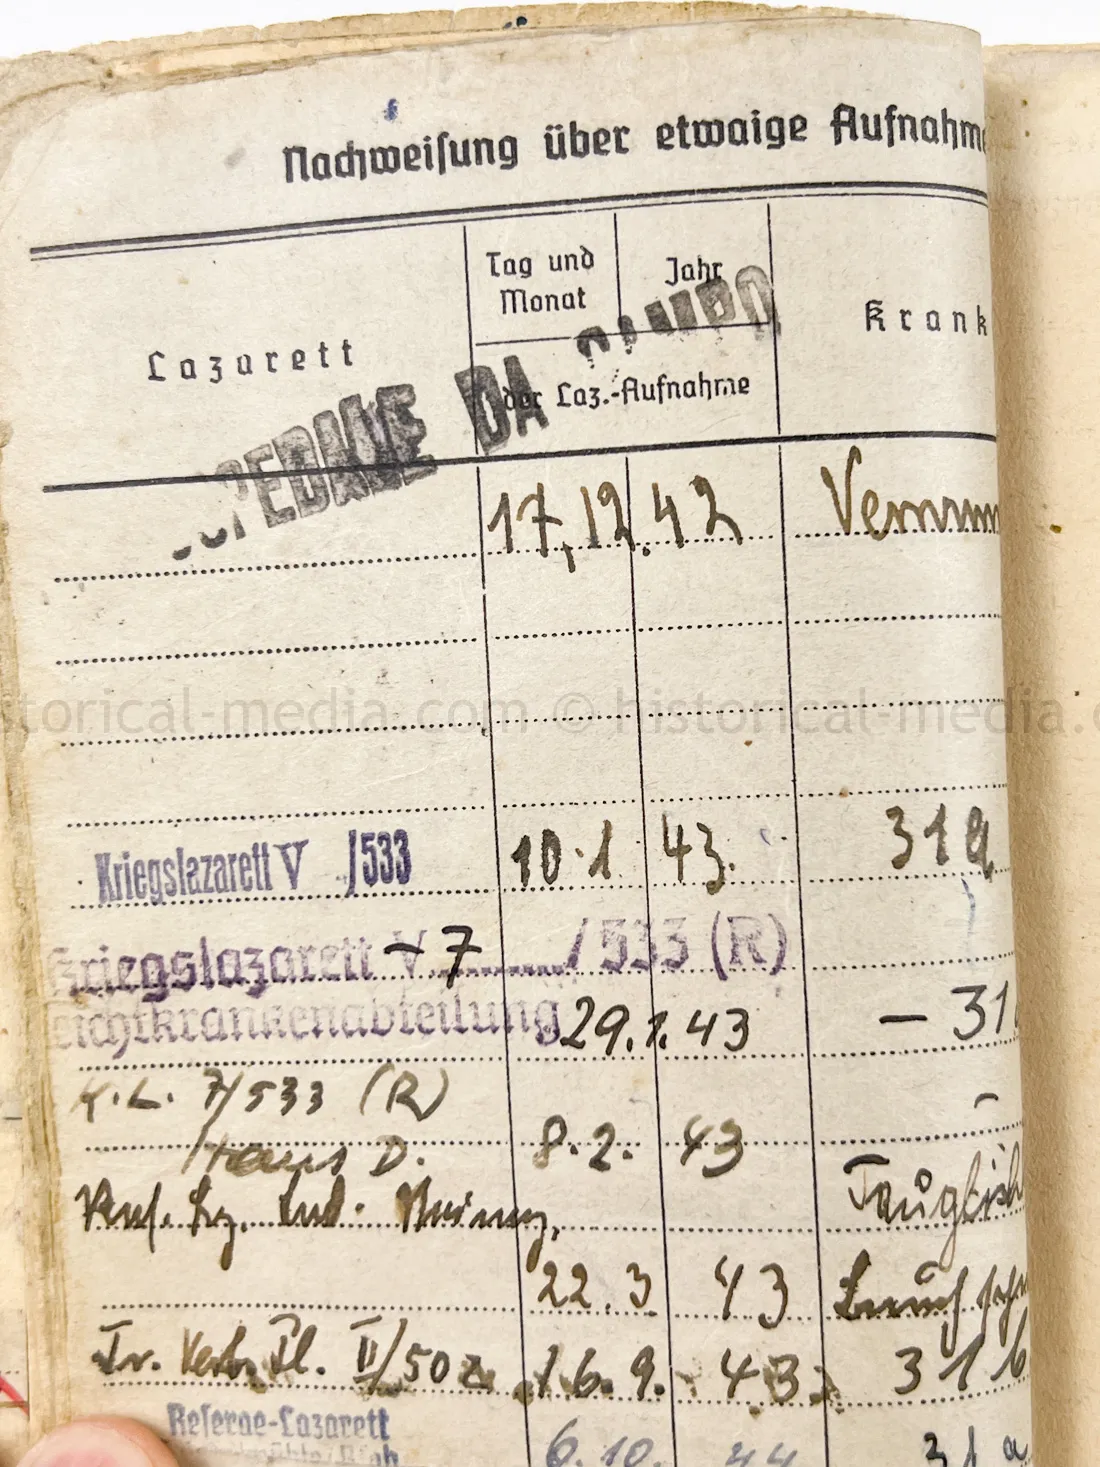 Nachweisung über etwaige Aufnahme
Lazarett
Tag und Monat
Jahr
der Laz.-Aufnahme
Krank
OSPEDALE DA CAMPO
17.12. 42
Kriegslazarett V /533 10.1 43. 31a
Kriegslazarett V 7 /533 (R)
Leichtkrankenabteilung 29.1. 43 – 31
K.L. 7/533 (R)
Haus D. 8.2. 43
Tauglich
22.3 43
Tr. Verb. Pl. II/50 16.9. 43. 31b
Reserve-Lazarett
6.10. 44 31a
historical-media.com © historical-media.